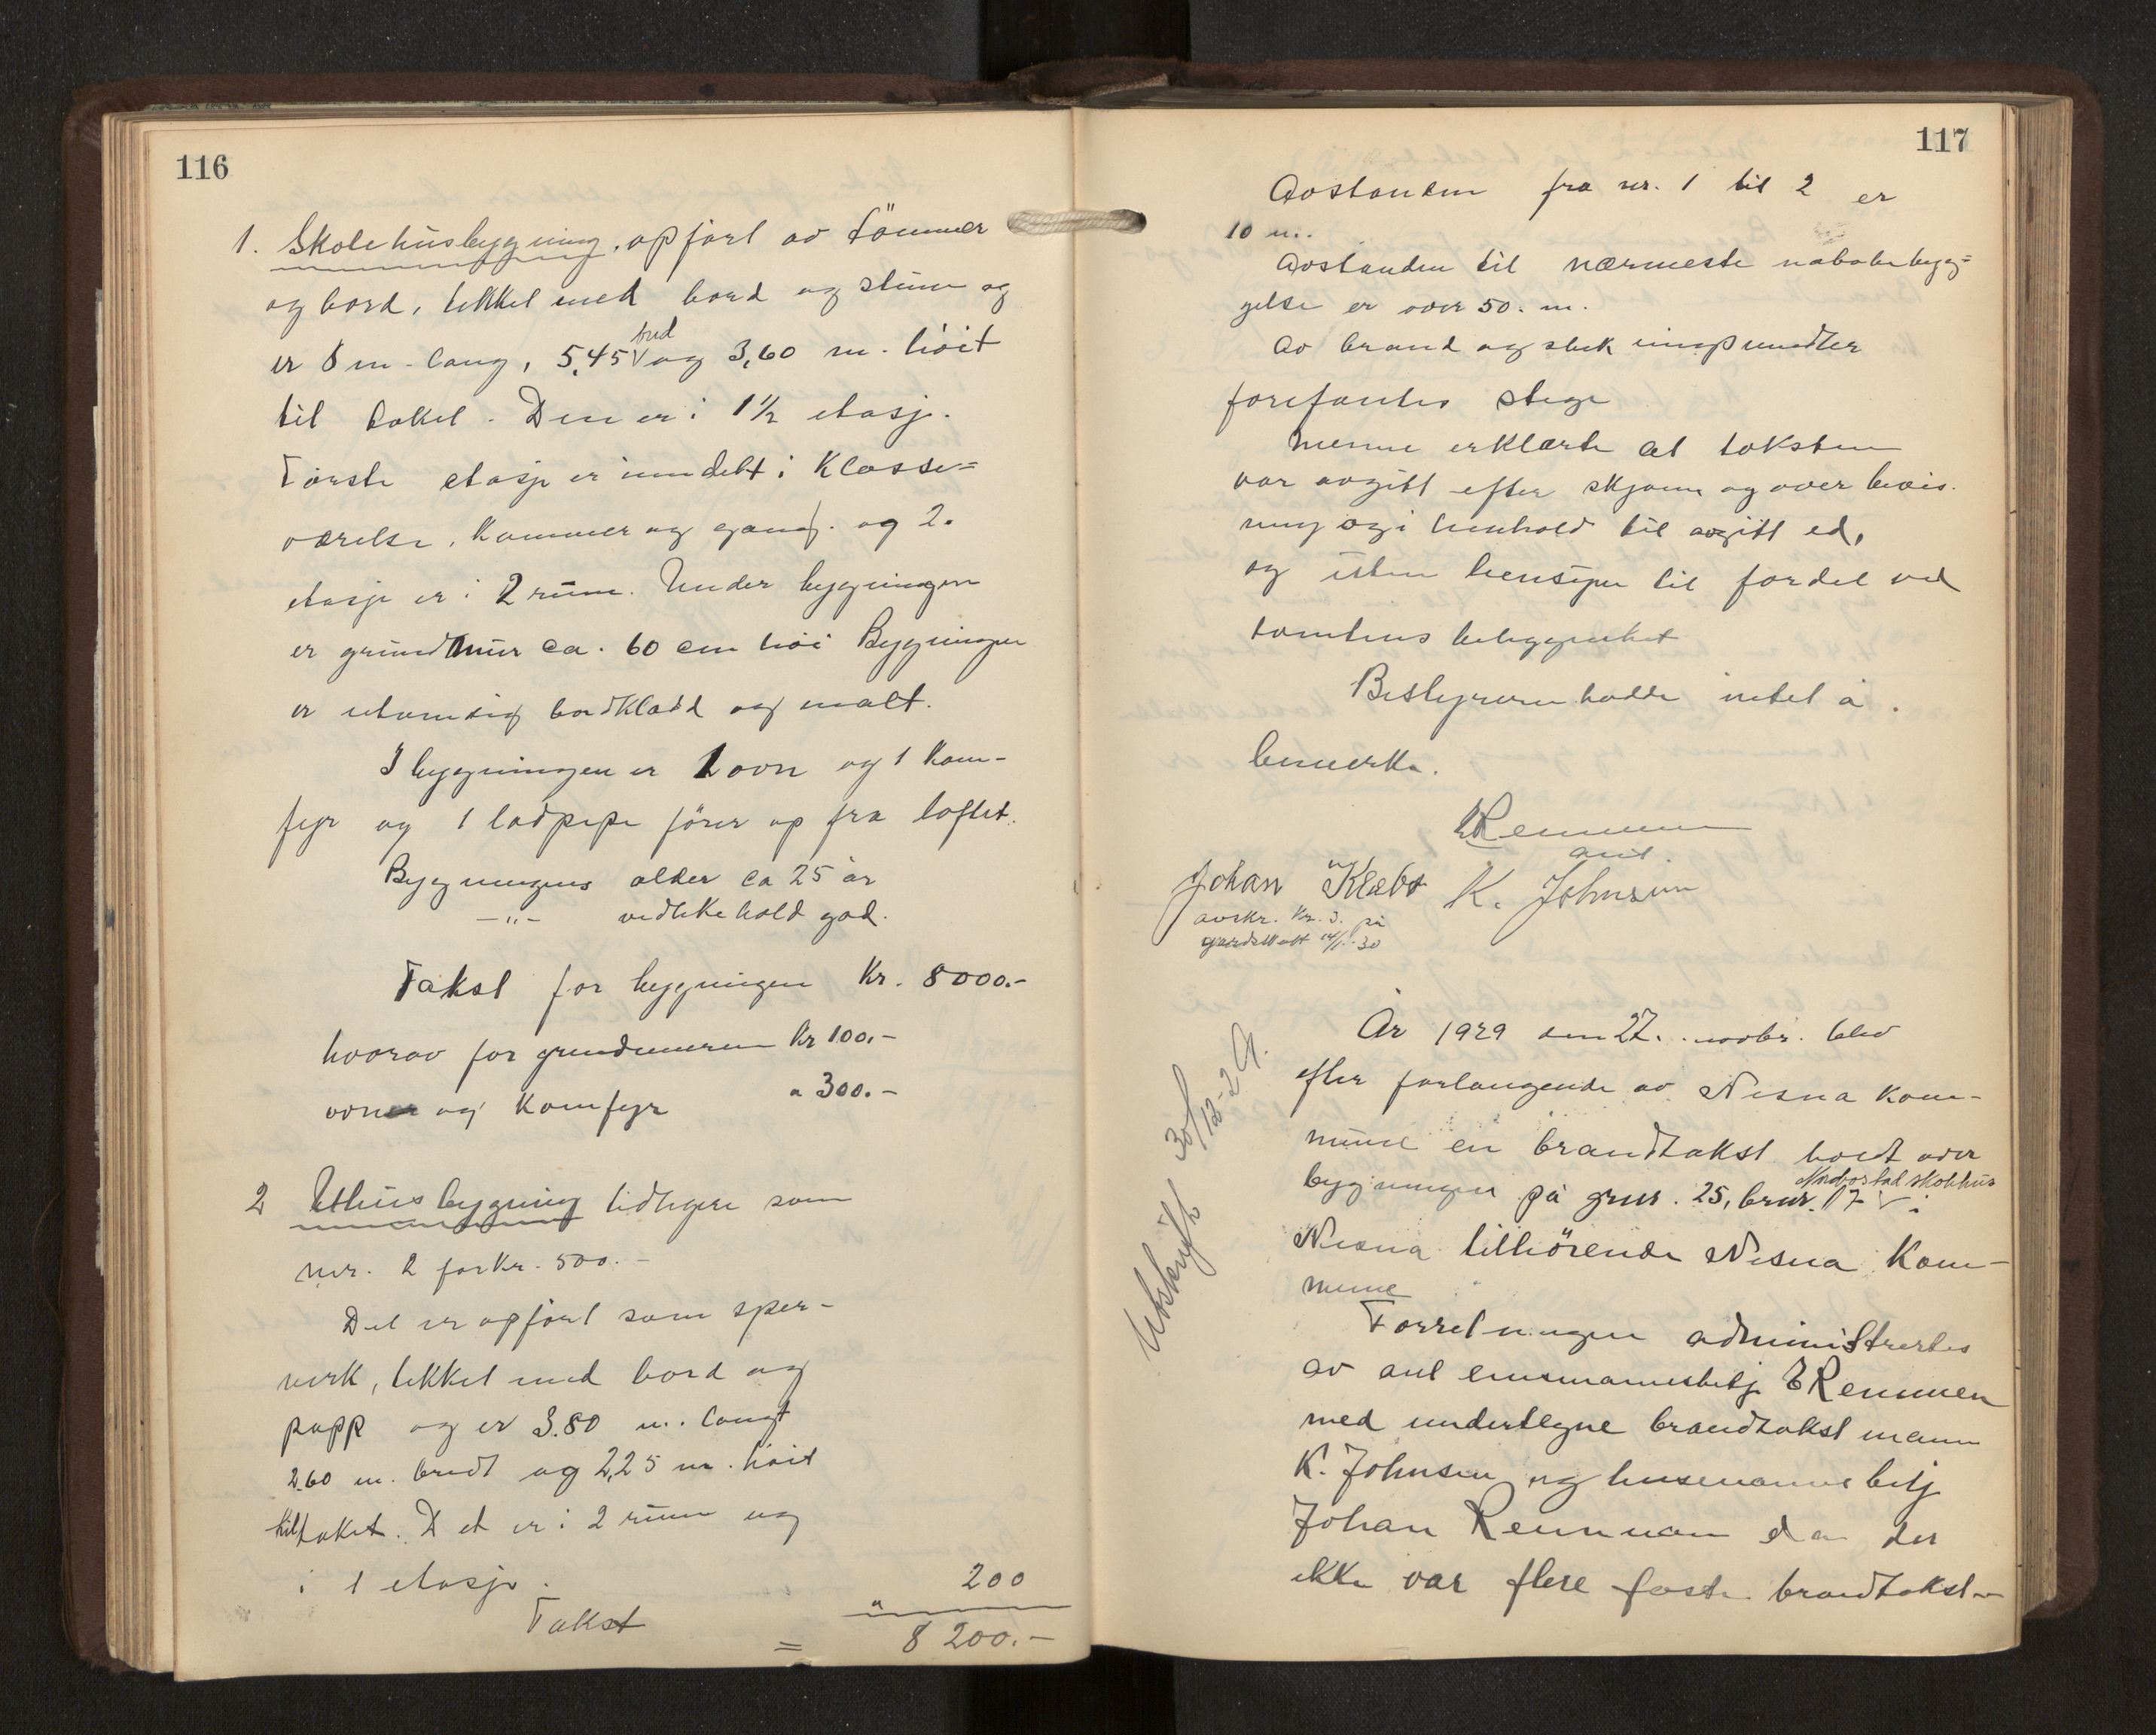 116
1. Skolehusbygning, opført av tømmer
og bord, tekket med bord og stein og
er 8 m. lang, 5,45 bred og 3,60 m. høit
til taket. Den er i 1½ etasje.
Første etasje er inndelt i Klasse=
værelse, kammer og gang. og 2.
etasje er i 2 rum. Under bygningen
er grundmur ca. 60 cm høi Bygningen
er utvendig bordklædd og malt.
I bygningen er 1 ovn og 1 kom-
fyr og 1 lodpipe fører op fra loftet.
Bygningens alder ca 25 år
-"- vedlikehold god.
Takst for bygningen Kr. 8000.-
hvorav for grundmuren Kr 100.-
ovner og Komfyr " 300.-
2 Uthusbygning tidligere som
nr. 2 for Kr. 500.-
Det er opført som sper-
verk, tekket med bord og
papp og er 3.80 m. langt
2.60 m. bredt og 2,25 m. høit
til taket. Det er i 2 rum og
i 1 etasje.
Takst " 200
= 8 200.-
117
Avstanden fra nr. 1 til 2 er
10 m.
Avstanden til nærmeste nabobebyg=
gelse er over 50. m.
Av brand og sluk
forefantes stige
Menne erklærte at taksten
var avgitt efter skjønn og overbevis-
ning og i henhold til avgitt ed,
og uten hensyn til fordel ved
tomtens beliggenhet
Bestyreren hadde intet å
bemerke.
E Remmen
aut.
Johan Klæbo K. Johnsen
avskr. Kr. 3. på
gardskatt 14/1-30
Utskrift 30/12-29.
År 1929 den 27. novbr. blev
efter forlangende av Nesna Kom-
mune en brandtakst holdt over
bygningen på gnr. 25, brnr. 17 Nordbostad skolehus i
Nesna tilhørende Nesna Kom-
mune
Forretningen administrertes
av aut lensmannsbetj E Remmen
med undertegne brandtakst mann
K. Johnsen og lensmannsbetj
Johan Remman da der
ikke var flere faste brandtakst-